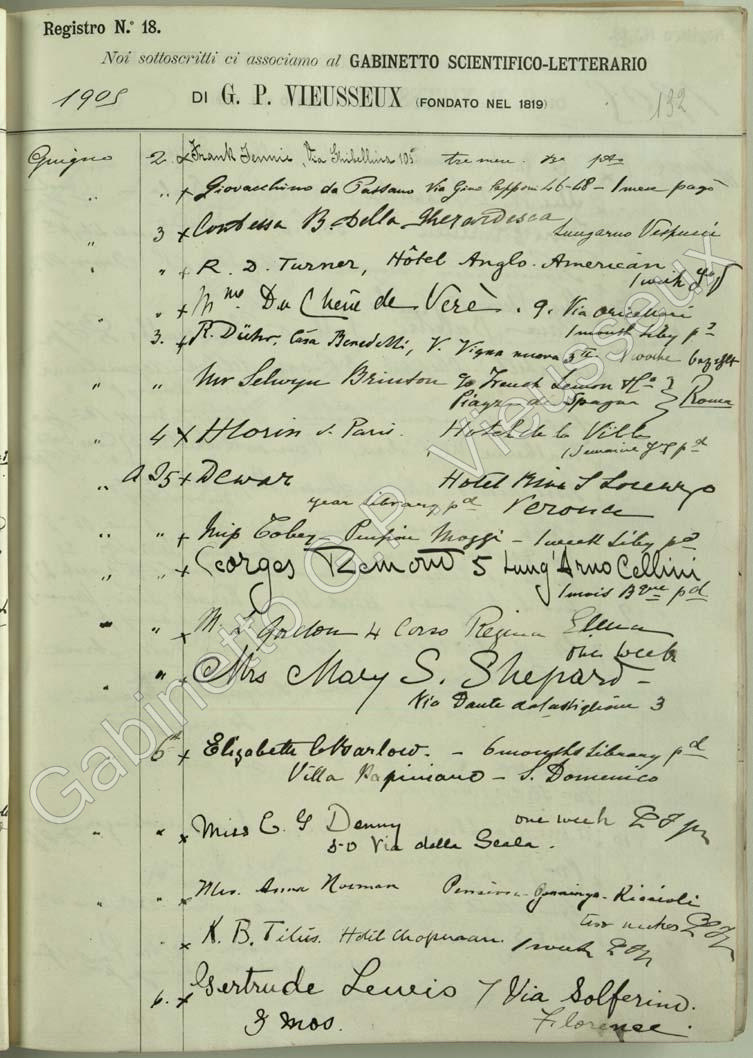 Registro N.° 18.
Noi sottoscritti ci associamo al GABINETTO SCIENTIFICO-LETTERARIO
1905 DI G. P. VIEUSSEUX (FONDATO NEL 1819) 132
Giugno 2. x Frank Via Ghibellina 105
" " x Giovacchino da Passano Via Gino Capponi 46-48 - 1 mese pagò
" 3 x Contessa B. Della Gherardesca
Lungarno Vespucci
" " x R. D. Turner, Hôtel Anglo-American.
1 week
" " x Mme Du Chêne de Verè. 9. Via Oricellari
1 month Liby pd
3. x R. Casa Benedetti, V. Vigna nuova
" " Mr Selwyn Brinton c/o French Lemon & Co
Piazza di Spagna } Roma
" 4 x Paris. Hotel de la Ville
1 semaine pd
" 5 x Dewar Hotel Riva S Lorenzo
year library pd Verona
" " x Miss Tobey - Pension Moggi - 1 week Liby pd
" " x Georges Remond 5 Lung'Arno Cellini
1 mois pd
" " x Gordon 4 Corso Regina Elena
one week
" " x Mrs Mary S. Shepard -
Via Dante da Castiglione 3
6th x Elizabeth Marlow. - 6 months Library pd
Villa Papiniano - S. Domenico
" " x Miss C. G Denny one week
50 Via della Scala.
" " x Mrs. Anna Norman Pension Jennings-Riccioli
two weeks
" x K. B. Titus. Hotel Chapman. 1 week
6. x Gertrude Lewis 7 Via Solferino.
3 mos. Florence.
Gabinetto G.P. Vieusseux